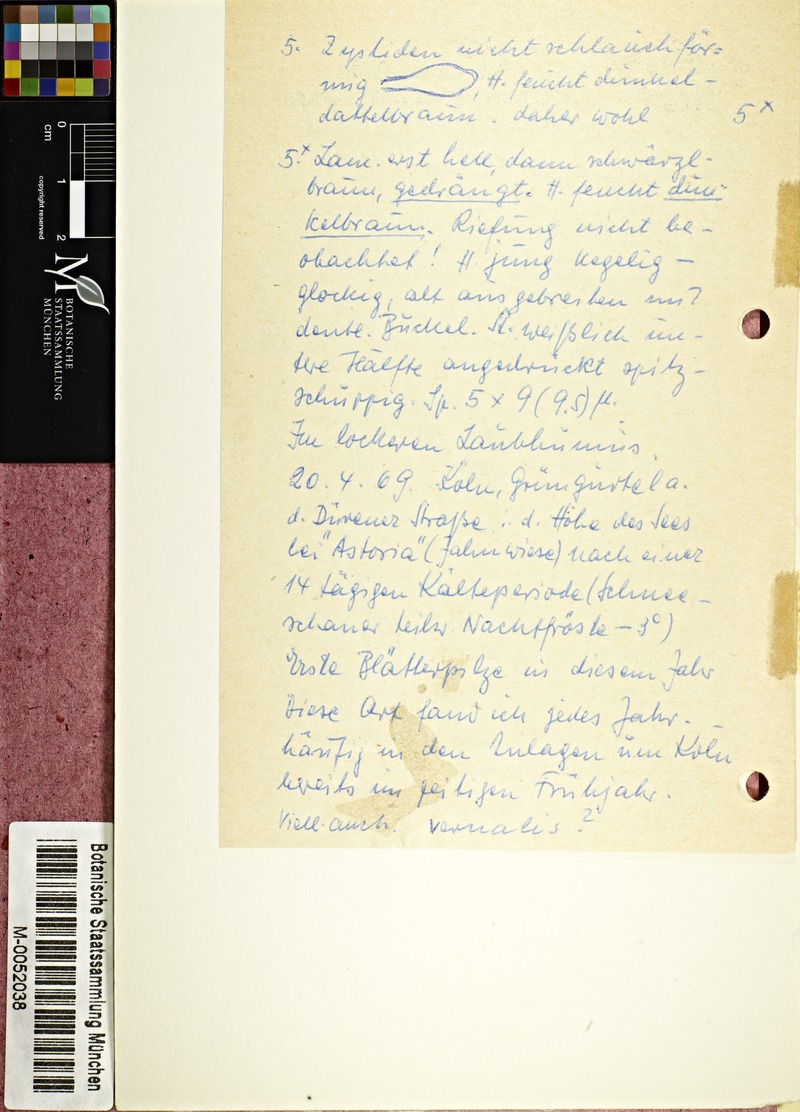 5. Zystiden nicht schlauchför-
mig , H. feucht dunkel-
dattelbraun. daher wohl 5x
5.x Lam. erst hell, dann schwärzl-
braun, gedrängt. H. feucht dun-
kelbraun. Riefung nicht be-
obachtet! H jung kegelig-
glockig, alt ausgebreitet mit
deutl. Buckel. St. weißlich un-
tere Hälfte angedrückt spitz-
schuppig. Sp. 5 x 9 (9.5) µ.
Im lockeren Laubhumus.
20.4.69. Köln, Grüngürtel a.
d. Dürener Straße i. d. Höhe des Sees
bei "Astoria" (Jahnwiese) nach einer
14 tägigen Kälteperiode (Schnee-
schauer teilw. Nachtfröste - 3°)
Erste Blätterpilze in diesem Jahr
Diese Art fand ich jedes Jahr.
häufig in den Anlagen um Köln
bereits im zeitigen Frühjahr.
Viell. auch. vernalis?
0 1 2
cm
copyright reserved
M
BOTANISCHE
STAATSSAMMLUNG
MÜNCHEN
Botanische Staatssammlung München
M-0052038